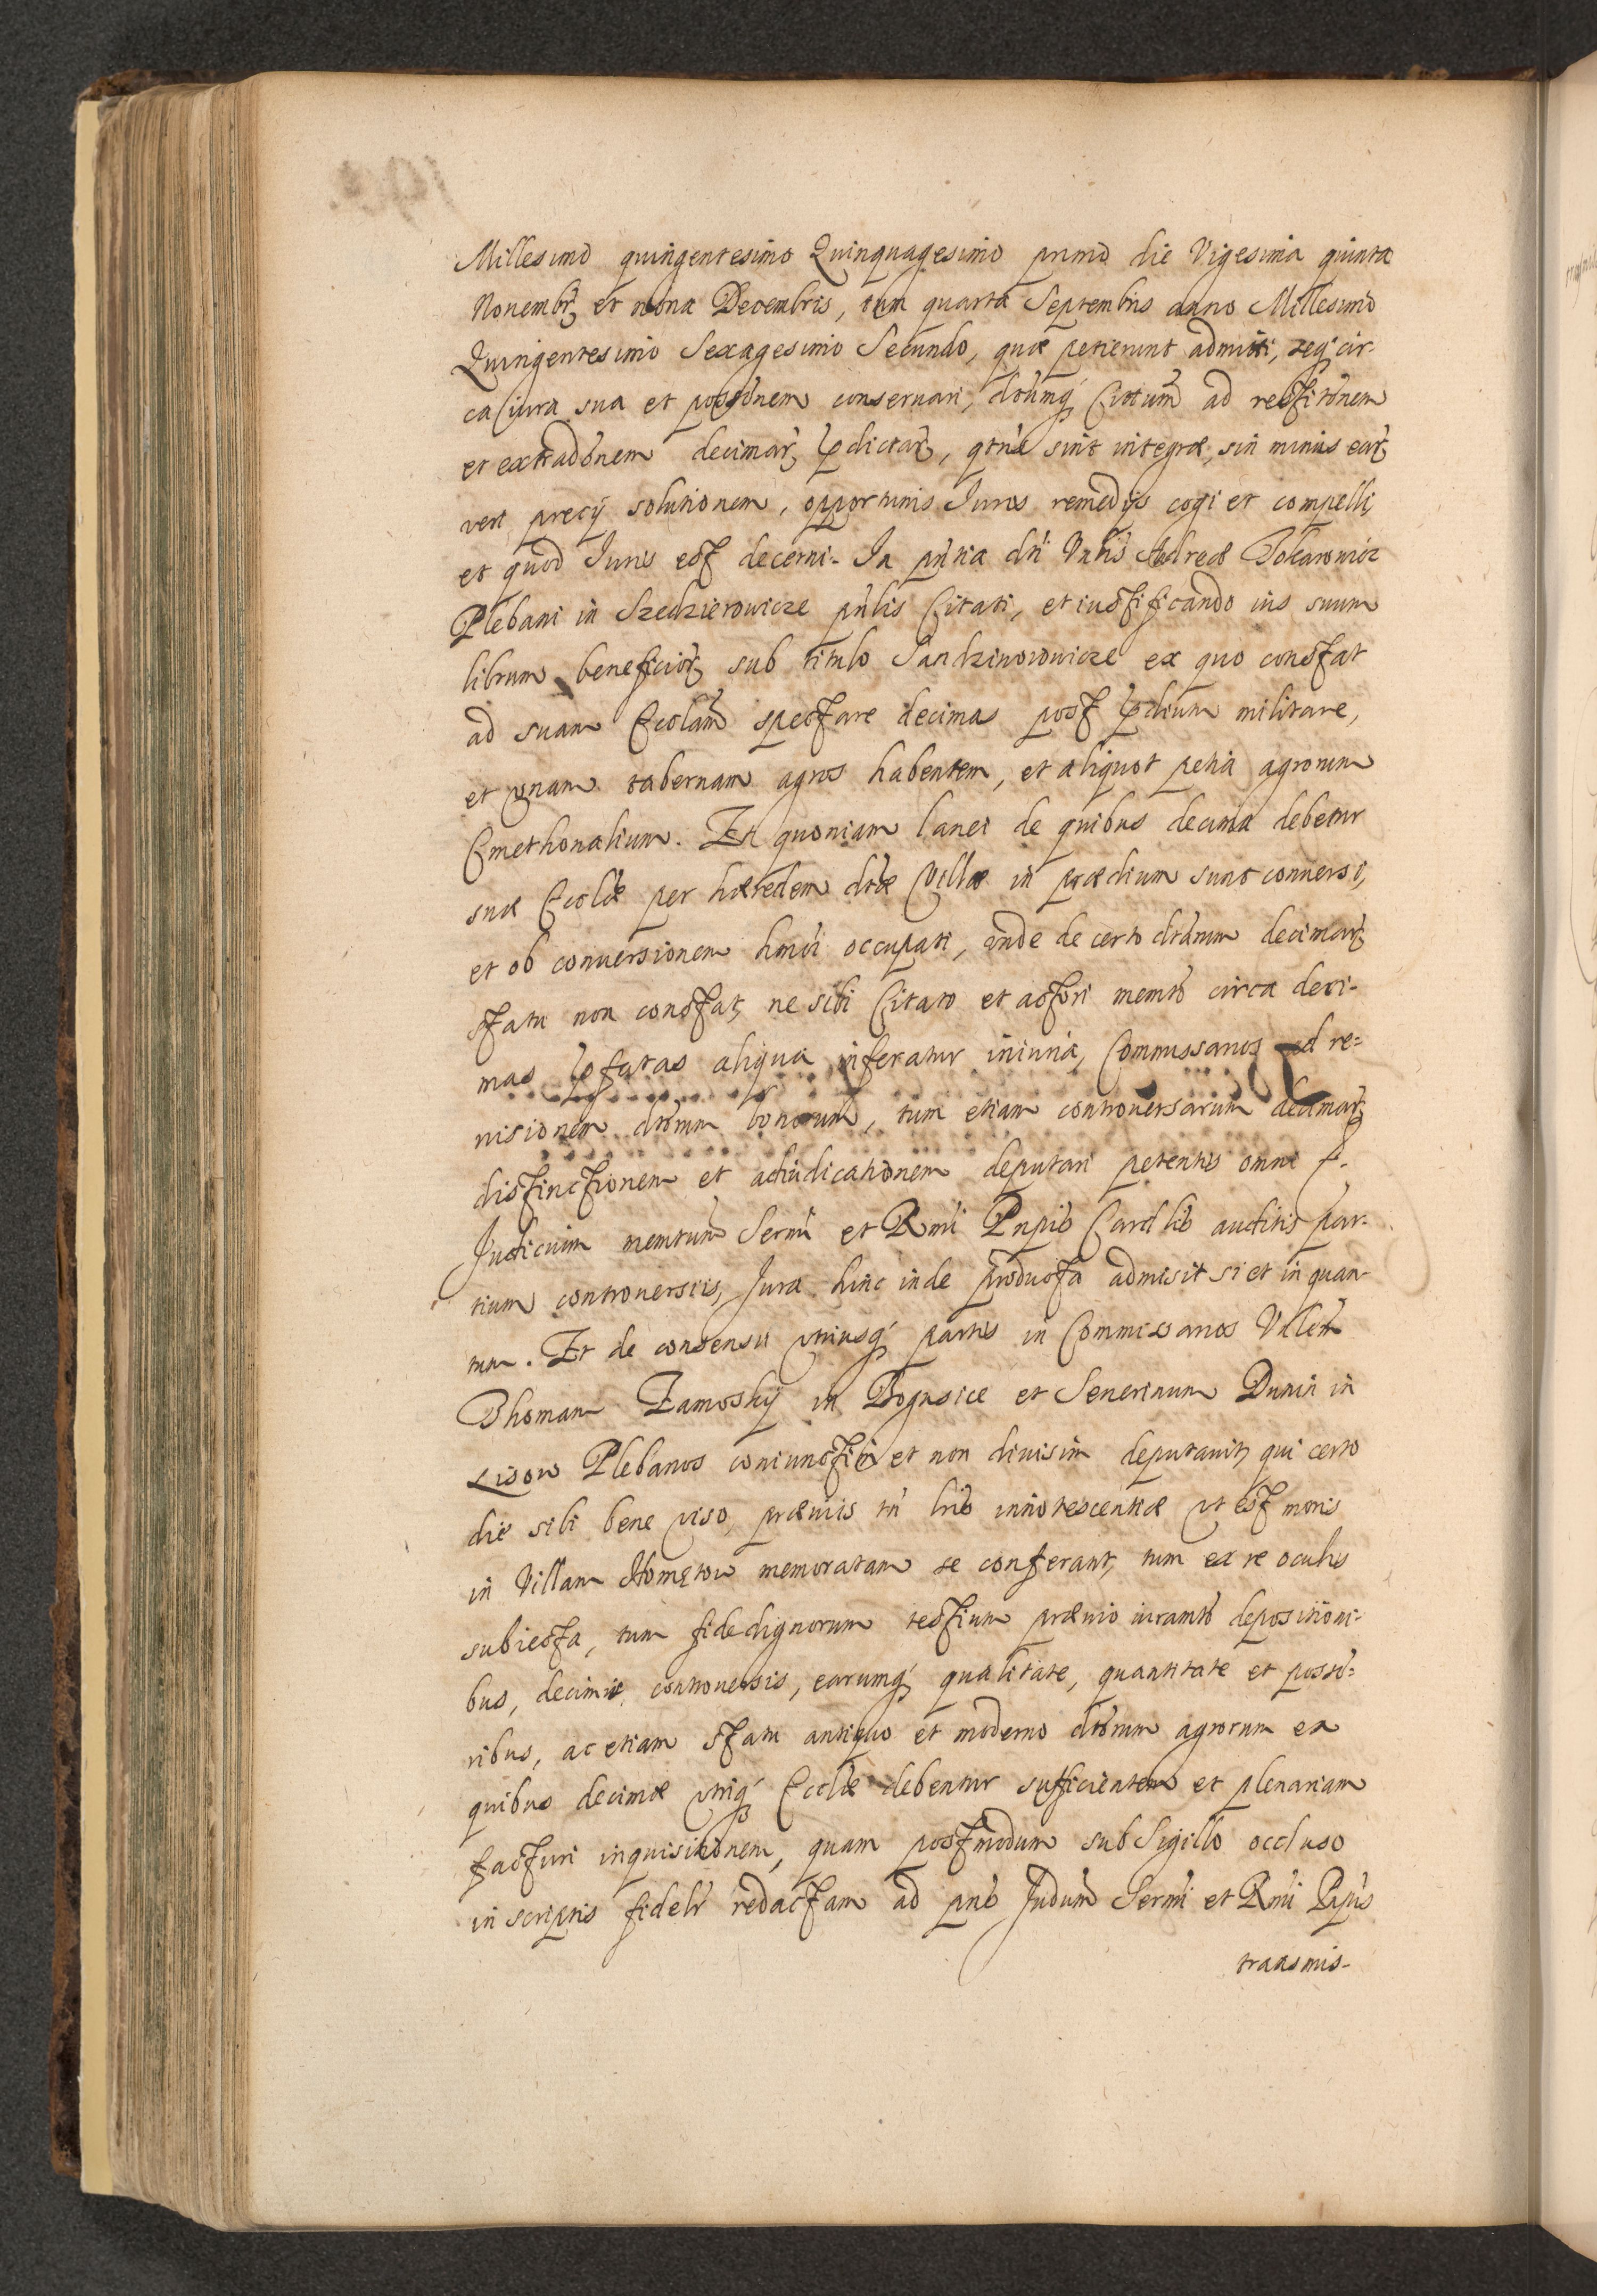 Millesimo quingentesimo Quinquagesimo primo die Vigesima quinta
Nouembr; et nona Decembris, tum quarta Septembris anno Millesimo
Quingentesimo Sexagesimo Secundo, quæ petierunt admitti, seq́ cir-
ca iura sua et possionem conseruari, dtumq́ Citum ad restitonem
et extradonem decimar; pdictar;, qtus sint integræ, sin minus ear;
veri precij solutionem, opportunis Iuris remedijs cogi et compelli,
et quod Iuris est decerni. In pntia dni Vnlis Andreæ Tokarowicz
Plebani in Szedzierowicze pnlis Citati, et iustificando ius suum
librum beneficior; sub titulo Sandzinowowicze ex quo constat
ad suam Ecclam spectare decimas post pdium militare,
et vnam tabernam agros habentem, et aliquot petia agrorum
Cmethonalium. Et quoniam lanei de quibus decima debetur
suæ Ecclæ per hæredem dtæ Villæ in prædium sunt conuersi,
et ob conuersionem hmoi occupati, vnde de certo dtarum decimar;
statu non constat, ne sibi Citato et actori memto circa deci-
mas pfatas aliqua inferatur iniuria, Commissarios ad re-
uisionem dtorum bonorum, tum etiam controuersarum decimar;
distinctionem et adiudicationem deputari petentis omni
Judicium memtum Sermi et Rmi Pnpis Cardlis auditis par-
tium controuersiis, Jura hinc inde producta admisit si et in quan-
tum. Et de consensu vtriusq́ partis in Commissarios Vlles
Thomam Zamoskij in Bogusice et Seuerinum Dunin in
Lisow Plebanos coniunctim et non diuisim deputauit, qui certo
die sibi bene viso, præuiis tn lris innotescentiæ vt est moris
in Villam Homętow memoratam se conferant, tum ex re oculis
subiecta, tum fidedignorum testium præuio iuramto depositioni-
bus, decimis controuersis, earumq́ qualitate, quantitate et posso-
ribus, ac etiam statu antiquo et moderno dtorum agrorum ex
quibus decimæ vtriq́ Ecclæ debentur sufficientem et plenariam
facturi inquisitionem, quam postmodum sub Sigillo occluso
in scriptis fidelr redactam ad pns Judum Sermi et Rmi Pnpis
transmis-